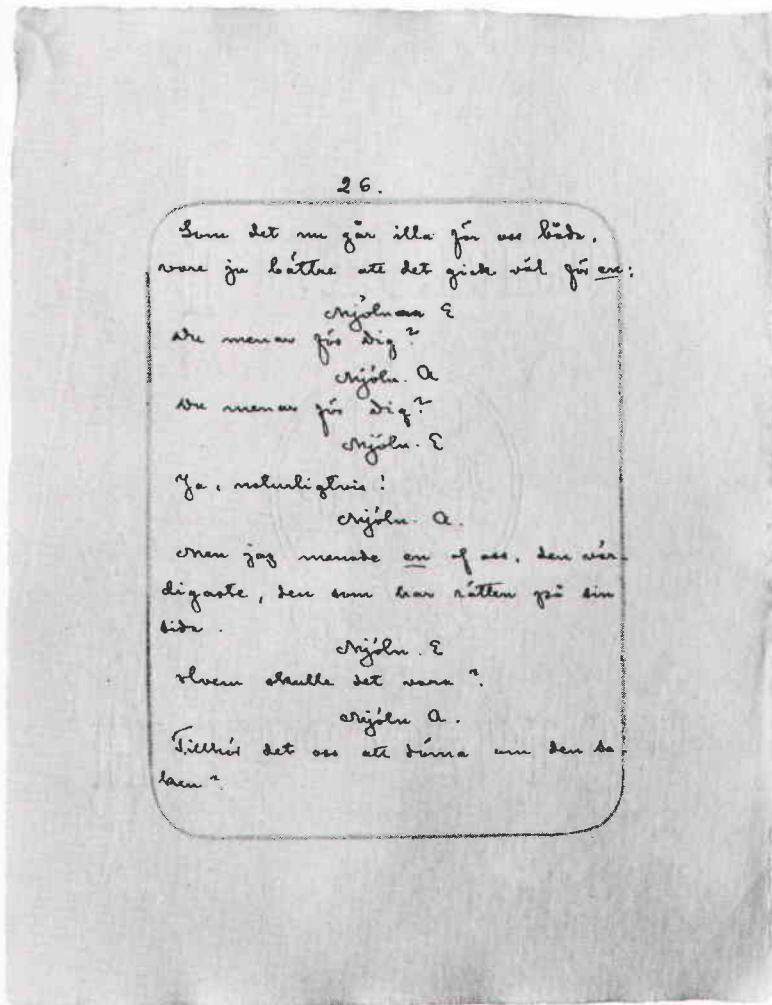 26.
Som det nu går illa för oss båda,
vore ju bättre att det gick väl för en;
Mjöln E
Du menar för dig?
Mjöln. A
Du menar för dig?
Mjöln. E
Ja, naturligtvis!
Mjöln. A.
Men jag menade en af oss, den vär-
digaste, den som har rätten på sin
sida.
Mjöln. E
Hvem skulle det vara?
Mjöln A.
Tillhör det oss att döma om den sa-
ken?